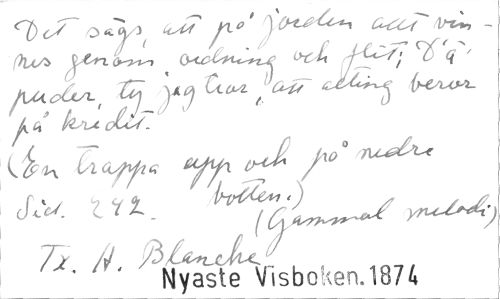 Det sägs, att på jorden allt vin-
nes genom ordning och flit; D'ä'
puder, ty jag tror, att allting beror
på kredit.
(En trappa opp och på nedre
botten.)
Sid. 242.
(Gammal melodi)
Tx. A. Blanche
Nyaste Visboken. 1874